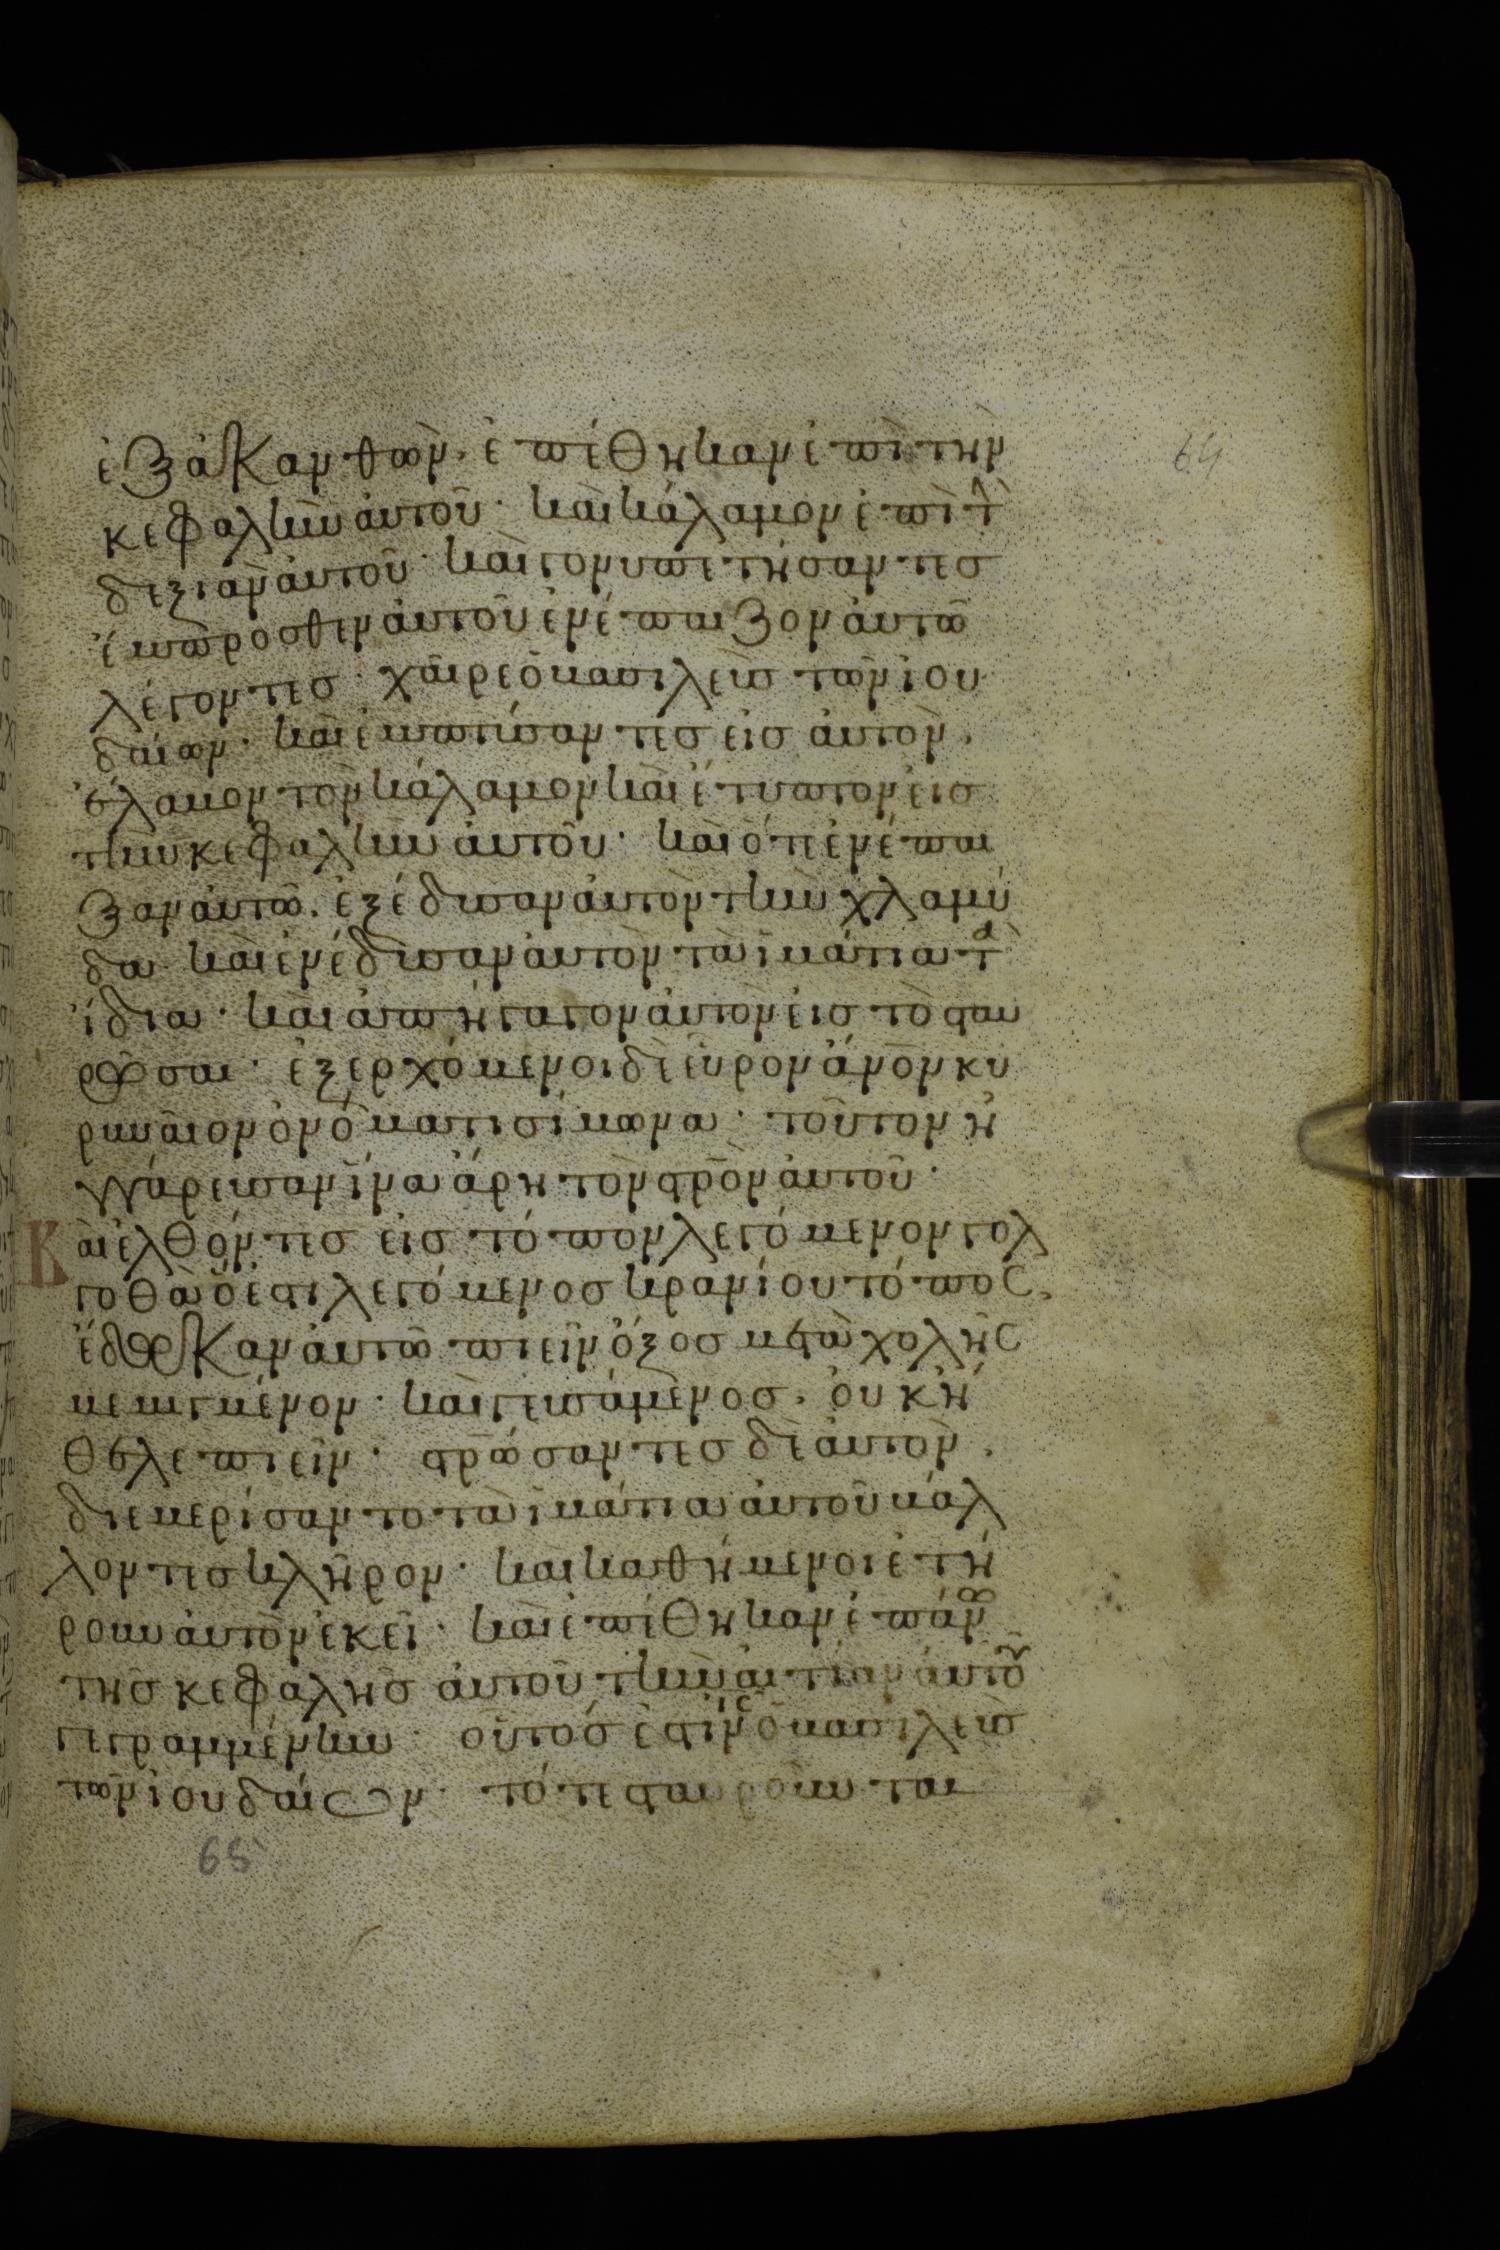 ἐξ ἀκανθῶν· ἐπέθηκαν ἐπὶ τὴν
κεφαλὴν αὐτοῦ· καὶ κάλαμον ἐπὶ τ̀
δεξιὰν αὐτοῦ· καὶ γονυπετήσαντες
ἔμπροσθεν αὐτοῦ ἐνέπαιζον αὐτῶ
λέγοντες· χαῖρε ὁ βασιλεὺς τῶν ἰου
δαίων· καὶ ἐμπτύσαντες εἰς αὐτὸν·
ἔλαβον τὸν κάλαμον καὶ ἔτυπτον εἰς
τὴν κεφαλὴν αὐτοῦ· καὶ ὅτε ἐνέπαι
ξαν αὐτῶ· ἐξέδυσαν αὐτὸν τὴν χλαμύ
δα καὶ ἐνέδυσαν αὐτὸν τὰ ἱμάτια τὰ
ἴδια· καὶ ἀπήγαγον αὐτὸν εἰς τὸ σταυ
ρῶσαι· ἐξερχόμενοι δὲ εὗρον ἄνον κυ
ρηναῖον ὀνόματι σίμωνα· τοῦτον ἠ
γγάρευσαν ἵνα ἄρη τὸν στρὸν αὐτοῦ·
Καὶ ἐλθόντες εἰς τόπον λεγόμενον γολ
γοθᾶ ὅ ἐστι λεγόμενος κρανίου τόπος·
ἔδωκαν αὐτῶ πιεῖν ὄξος μετὰ χολῆς
μεμιγμένον· καὶ γευσάμενος· οὐκ ἤ
θελε πιεῖν· στρώσαντες δὲ αὐτὸν·
διεμερίσαντο τὰ ἱμάτια αὐτοῦ βάλ
λοντες κλῆρον· καὶ καθήμενοι ἐτή
ρουν αὐτὸν ἐκεῖ· καὶ ἐπέθηκαν ἐπάνω
τῆς κεφαλῆς αὐτοῦ τὴν αἰτίαν αὐτοῦ
γεγραμμένην· οὗτός ἐστιν ις ὁ βασιλεὺς
τῶν ἰουδαίων· τότε σταυροῦνται
64
65